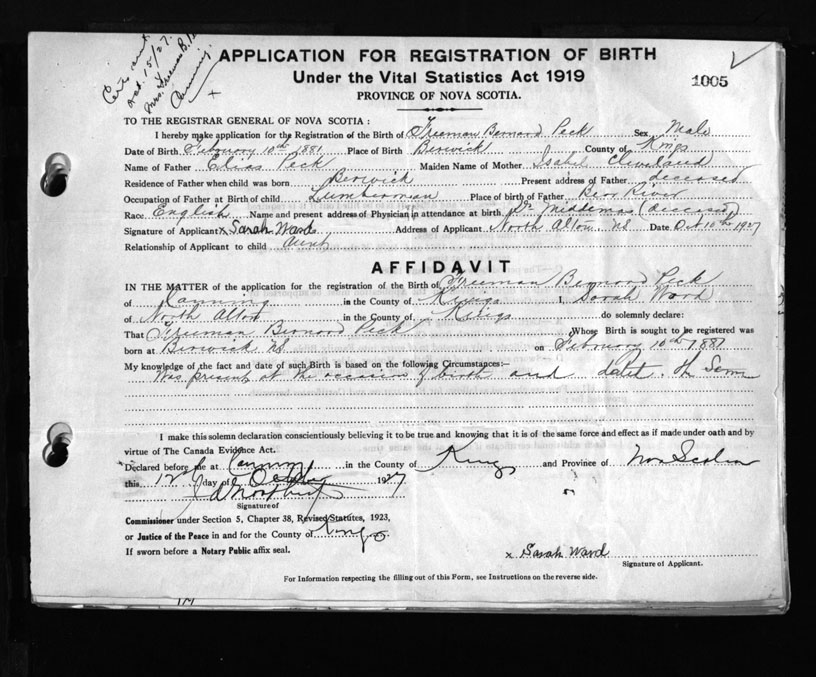 Oct. 15/27.
Mrs. Freeman B.
Canning.
APPLICATION FOR REGISTRATION OF BIRTH
1005
Under the Vital Statistics Act 1919
PROVINCE OF NOVA SCOTIA.
TO THE REGISTRAR GENERAL OF NOVA SCOTIA :
I hereby make application for the Registration of the Birth of Freeman Bernard Peck Sex Male
Date of Birth February 10th 1881 Place of Birth Berwick County of Kings
Name of Father Elias Peck Maiden Name of Mother Isabel Cleveland
Residence of Father when child was born Berwick Present address of Father deceased
Occupation of Father at Birth of child Lumberman Place of birth of Father Bear River
Race English Name and present address of Physician in attendance at birth Dr. (deceased)
Signature of Applicant x Sarah Ward Address of Applicant North Alton, NS Date Oct 10th 1927
Relationship of Applicant to child Aunt
AFFIDAVIT
IN THE MATTER of the application for the registration of the Birth of Freeman Bernard Peck
of Canning in the County of Kings I, Sarah Ward
of North Alton in the County of Kings do solemnly declare:
That Freeman Bernard Peck Whose Birth is sought to be registered was
born at Berwick NS on February 10th 1881
My knowledge of the fact and date of such Birth is based on the following Circumstances:—
Was present at the occasion of birth and date of Same
I make this solemn declaration conscientiously believing it to be true and knowing that it is of the same force and effect as if made under oath and by
virtue of The Canada Evidence Act.
Declared before me at Canning in the County of Kings and Province of Nova Scotia
this 12th day of October 1927
Signature of
Commissioner under Section 5, Chapter 38, Revised Statutes, 1923,
or Justice of the Peace in and for the County of Kings
If sworn before a Notary Public affix seal.
x Sarah Ward
Signature of Applicant.
For Information respecting the filling out of this Form, see Instructions on the reverse side.